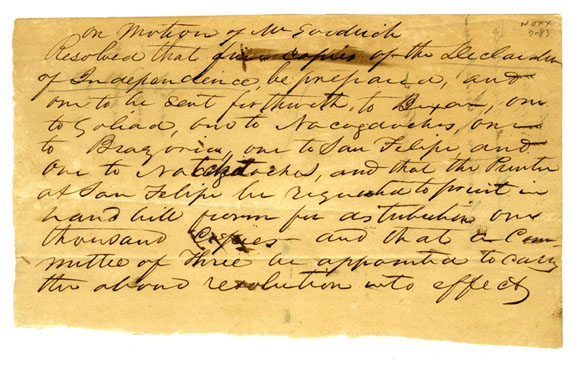 On Motion of Mr Goodrich
Resolved that five copies of the Declaration
of Independence, be prepared, and
one to be sent forthwith, to Bexar, one
to Goliad, one to Nacogdoches, one
to Brazoria, one to San Felipe, and
one to and that the Printer
at San Felipe be requested to print in
hand bill form for distribution one
thousand Copies and that a Com
mittee of three be appointed to carry
the above resolution into effect